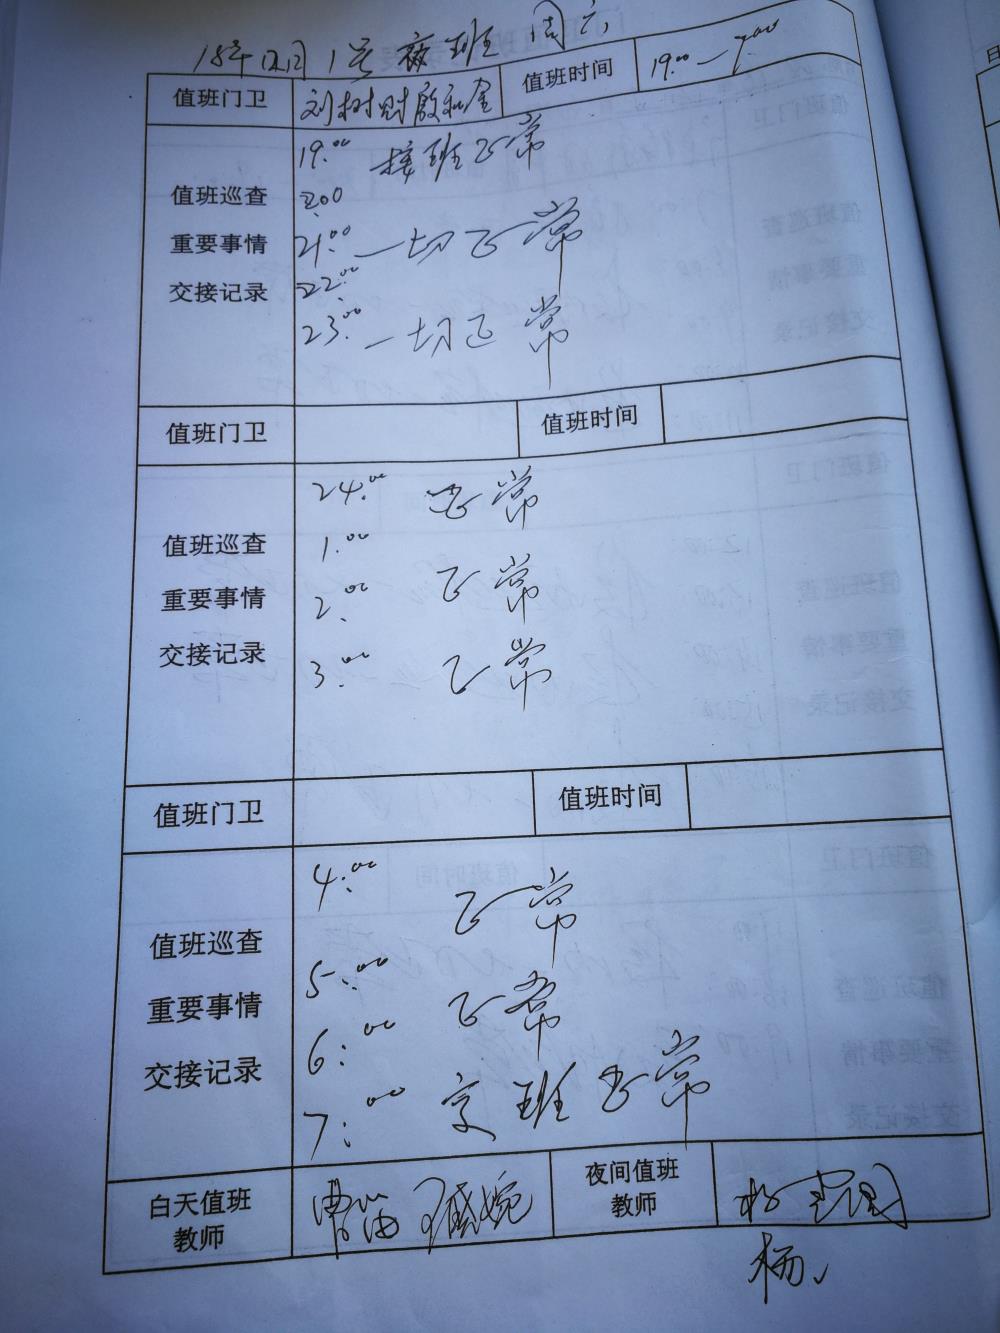 18年12月1号夜班 周六
值班门卫 刘树财殷和金 值班时间 19:00—7:00
19:00 接班正常
值班巡查 2:00
重要事情 21:00 一切正常
交接记录 22:00
23:00 一切正常
值班门卫 值班时间
24:00 正常
值班巡查 1:00
重要事情 2:00 正常
交接记录 3:00 正常
值班门卫 值班时间
4:00 正常
值班巡查
5:00 正常
重要事情
6:00
交接记录
7:00 交班正常
白天值班教师 曹笛 夜间值班教师
杨